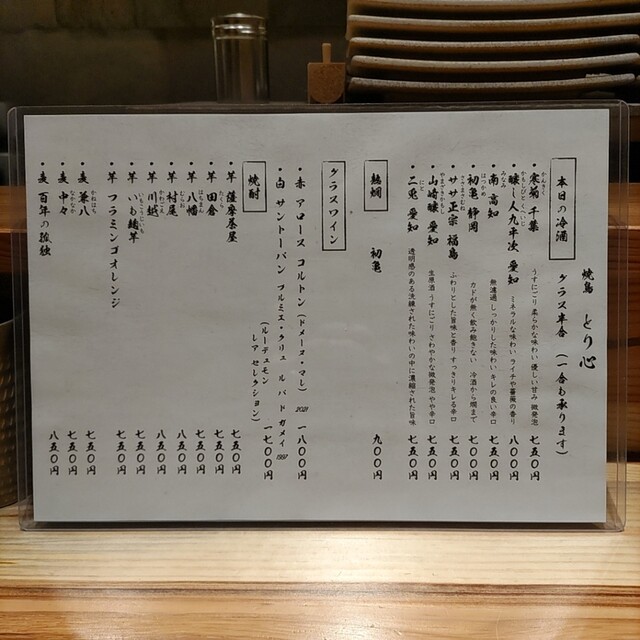 焼鳥 とり心
本日の冷酒 グラス半合 (一合も承ります)
・寒菊 千葉 うすにごり 柔らかな味わい 優しい甘み 微発泡 七五〇円
・醸し人九平次 愛知 ミネラルな味わい ライチや薔薇の香り 八〇〇円
・南 高知 無濾過 しっかりした味わい キレの良い辛口 七五〇円
・初亀 静岡 カドが無く飲み飽きない 冷酒から燗まで 七五〇円
・ササ正宗 福島 ふわりとした旨味と香り すっきりキレる辛口 七五〇円
・山崎醸 愛知 生原酒 うすにごり さわやかな微発泡 やや辛口 七五〇円
・二兎 愛知 透明感のある洗練された味わいの中に濃縮された旨味 七五〇円
熱燗 初亀 九〇〇円
グラスワイン
・赤 アロース コルトン (ドメーヌ・マレ) 2021 一八〇〇円
・白 サントーバン プルミエ・クリュ ル バド ガメイ 1997 一七〇〇円
(ルーデュモン レア セレクション)
焼酎
・芋 薩摩茶屋 七五〇円
・芋 田倉 七五〇円
・芋 八幡 七五〇円
・芋 村尾 八五〇円
・芋 川越 八五〇円
・芋 いも麹芋 七五〇円
・芋 フラミンゴオレンジ 七五〇円
・麦 兼八 七五〇円
・麦 中々 七五〇円
・麦 百年の孤独 八五〇円